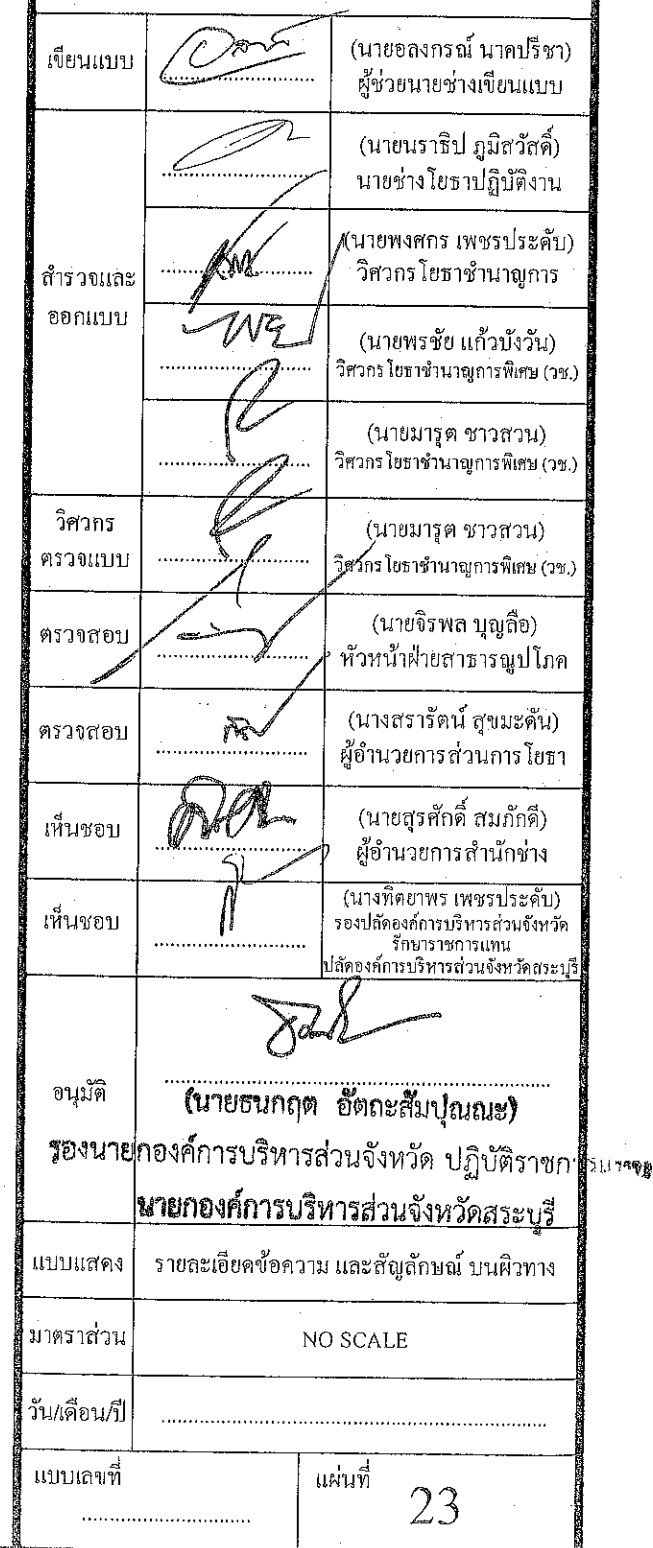 เขียนแบบ
(นายอลงกรณ์ นาคปรีชา)
ผู้ช่วยนายช่างเขียนแบบ
สำรวจและ
ออกแบบ
(นายนราธิป ภูมิสวัสดิ์)
นายช่างโยธาปฏิบัติงาน
(นายพงศกร เพชรประดับ)
วิศวกรโยธาชำนาญการ
(นายพรชัย แก้วบังวัน)
วิศวกรโยธาชำนาญการพิเศษ (วช.)
(นายมารุต ชาวสวน)
วิศวกรโยธาชำนาญการพิเศษ (วช.)
วิศวกร
ตรวจแบบ
(นายมารุต ชาวสวน)
วิศวกรโยธาชำนาญการพิเศษ (วช.)
ตรวจสอบ
(นายจิรพล บุญลือ)
หัวหน้าฝ่ายสาธารณูปโภค
ตรวจสอบ
(นางสรารัตน์ สุขมะดัน)
ผู้อำนวยการส่วนการโยธา
เห็นชอบ
(นายสุรศักดิ์ สมภักดี)
ผู้อำนวยการสำนักช่าง
เห็นชอบ
(นางทิตยาพร เพชรประดับ)
รองปลัดองค์การบริหารส่วนจังหวัด
รักษาราชการแทน
ปลัดองค์การบริหารส่วนจังหวัดสระบุรี
อนุมัติ
(นายธนกฤต อัตถะสัมปุณณะ)
รองนายกองค์การบริหารส่วนจังหวัด ปฏิบัติราชการแทน
นายกองค์การบริหารส่วนจังหวัดสระบุรี
แบบแสดง รายละเอียดข้อความ และสัญลักษณ์ บนผิวทาง
มาตราส่วน NO SCALE
วัน/เดือน/ปี
แบบเลขที่
แผ่นที่ 23